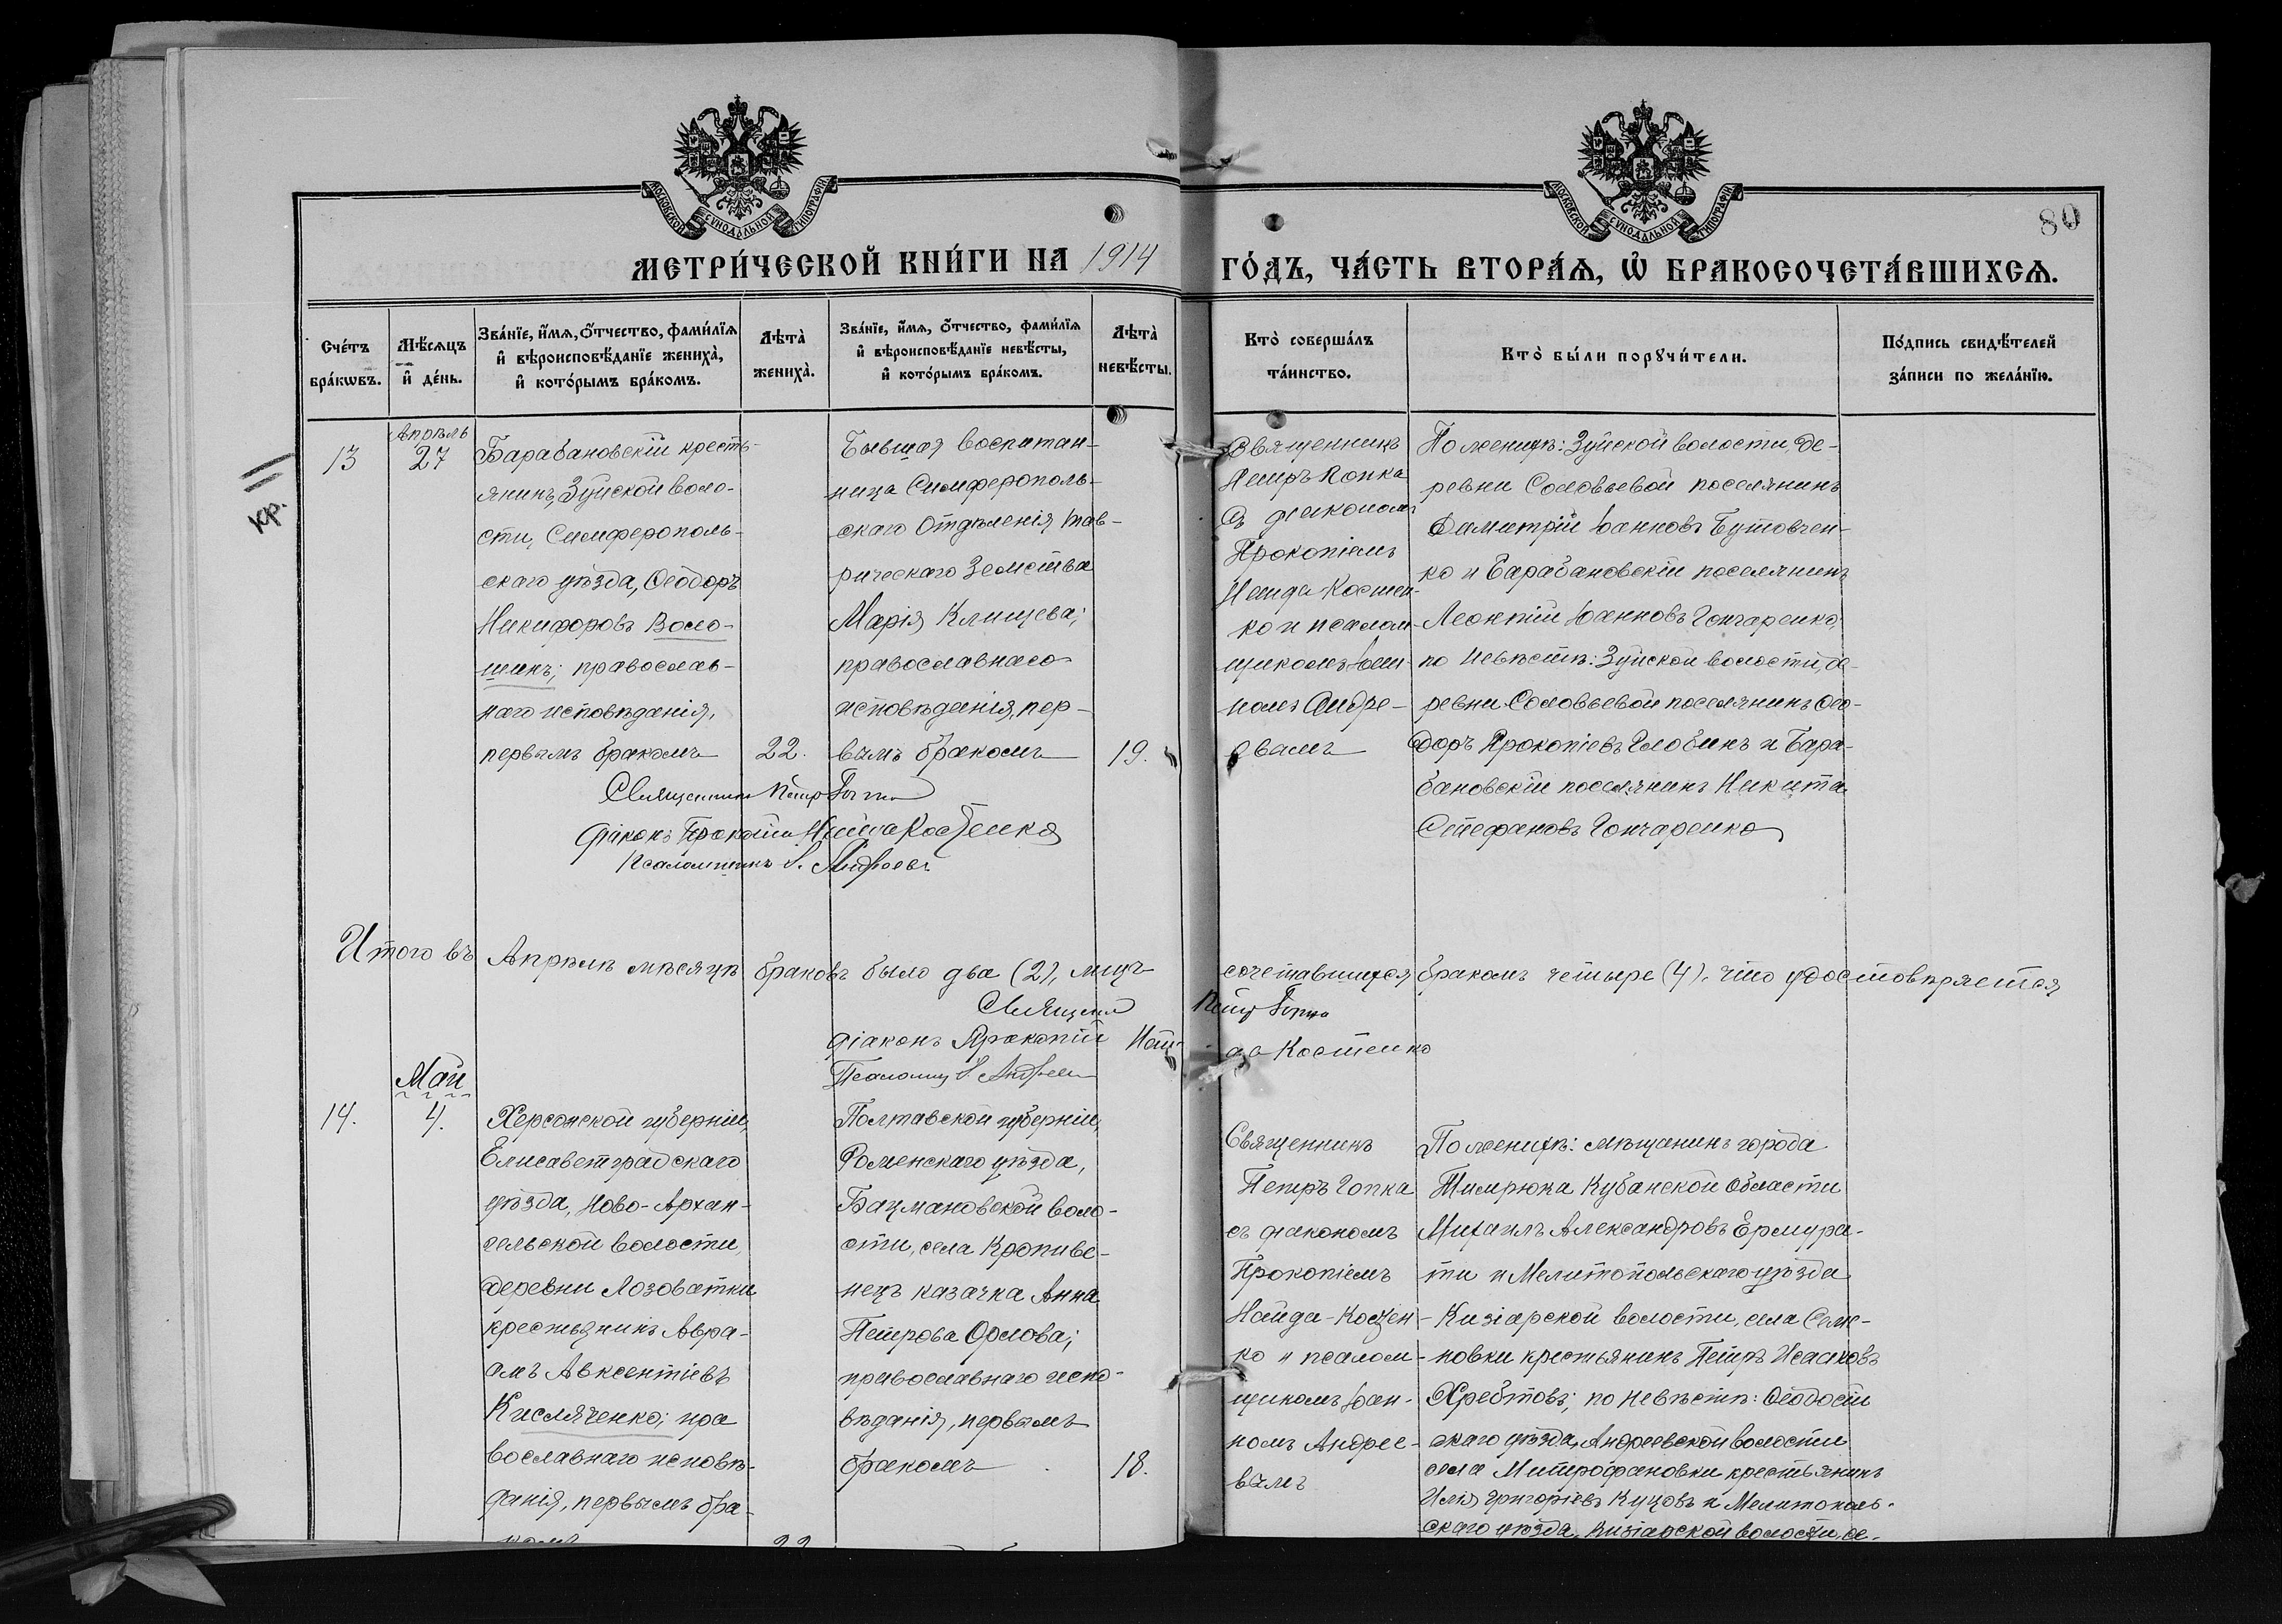 МОСКОВСКОЙ СУНОДАЛЬНОЙ ТИПОГРАФІИ
МОСКОВСКОЙ СУНОДАЛЬНОЙ ТИПОГРАФІИ
80
МЕТРИ́ЧЕСКОЙ КНИ́ГИ НА 1914 ГО́ДЪ, ЧА́СТЬ ВТОРА́Ѧ, Ѽ БРАКОСОЧЕТА́ВШИХСѦ.
Сче́тъ
бра́кѡвъ.
Мѣ́сяцъ
и де́нь.
Зва́нїе, и́мя, о́тчество, фами́лїя
и вѣроисповѣ́данїе жениха̀,
и кото́рымъ бра́комъ.
Лѣта̀
жениха̀.
Зва́нїе, и́мя, о́тчество, фами́лїя
и вѣроисповѣ́данїе невѣ́сты,
и кото́рымъ бра́комъ.
Лѣта̀
невѣ́сты.
Кто̀ соверша́лъ
та́инство.
Кто̀ бы́ли порꙋчи́тели.
По́дпись свидѣ́телей
за́писи по жела́нїю.
кр.
13
Апрѣль
27
Барабановскій кресть-
янинъ, Зуйской воло-
сти, Симферополь-
скаго уѣзда, Ѳеодоръ
Никифоровъ Воло-
шинъ; православ-
наго исповѣданія,
первымъ бракомъ
22.
Бывшая воспитан-
ница Симферополь-
скаго Отдѣленія Тав-
рическаго Земства
Марія Клищева;
православнаго
исповѣданія, пер-
вымъ бракомъ
19.
Священникъ
Петръ Гопка
съ діакономъ
Прокопіемъ
Найда-Костен-
ко и псалом-
щикомъ Іоан-
номъ Андре-
евымъ
По женихѣ: Зуйской волости, де-
ревни Соловьевой поселянинъ
Димитрій Іоанновъ Бутовчен-
ко и Барабановскій поселянинъ
Леонтій Іоанновъ Гончаренко;
по невѣстѣ: Зуйской волости, де-
ревни Соловьевой поселянинъ Ѳео-
доръ Прокопіевъ Глобинъ и Бара-
бановскій поселянинъ Никита
Стефановъ Гончаренко
Священникъ Петръ Гопка
Діаконъ Прокопій Найда Костенко
Псаломщикъ І. Андреевъ
Итого въ Апрѣлѣ мѣсяцѣ браковъ было два (2), лицъ сочетавшихся бракомъ четыре (4), что удостовѣряется
Священникъ Петръ Гопка
Діаконъ Прокопій Найда Костенко
Псаломщ І. Андреевъ
Май
14.
4.
Херсонской губерніи,
Елисаветградскаго
уѣзда, Ново-Архан-
гельской волости,
деревни Лозоватки
крестьянинъ Авра-
амъ Авксентіевъ
Кисляченко; пра
вославнаго исповѣ-
данія, первымъ бра-
комъ
22
Полтавской губерніи,
Роменскаго уѣзда,
Бацмановской воло-
сти, села Кропиве-
нецъ казачка Анна
Петрова Орлова;
православнаго испо-
вѣданія, первымъ
бракомъ
18.
Священникъ
Петръ Гопка
съ діакономъ
Прокопіемъ
Найда-Костен-
ко и псалом-
щикомъ Іоан-
номъ Андрее-
вымъ
По женихѣ: мѣщанинъ города
Темрюка Кубанской области
Михаилъ Александровъ Ермура-
ти и Мелитопольскаго уѣзда
Кизіарской волости, села Семе-
новки крестьянинъ Петръ Исааковъ
Хребтовъ; по невѣстѣ: Ѳеодосій
скаго уѣзда, Андреевской волости
села Митрофановки крестьянинъ
Илія Григоріевъ Куцовъ и Мелитополь-
скаго уѣзда, Кизіарской волости, се-